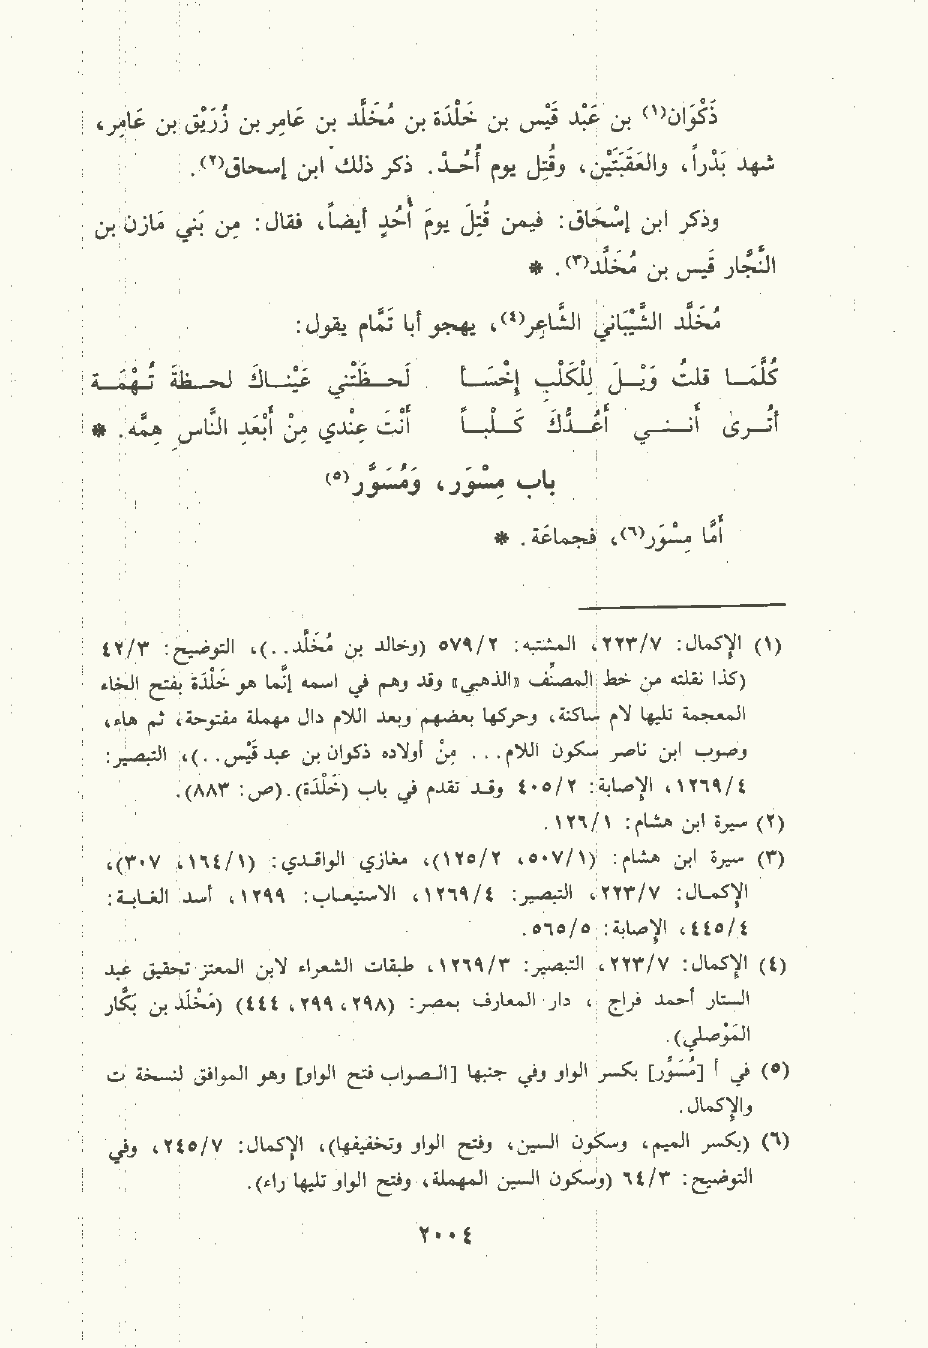 ذَكْوَان(١) بن عَبْد قَيْس بن خَلْدَة بن مُخَلَّد بن عَامِر بن زُرَيْق بن عَامِر،
شهد بَدْراً، والعَقَبَتَيْن، وقُتِل يوم أُحُـدْ. ذكر ذلك ابن إسحاق(٢).
وذكر ابن إسْحَاق: فيمن قُتِلَ يومَ أُحُدٍ أيضاً، فقال: مِن بَنِي مَازن بن
النَّجَّار قَيس بن مُخَلَّد(٣). *
مُخَلَّد الشَّيْبَاني الشَّاعِر(٤)، يهجو أبا تَمَّام يقول:
كُلَّمَـا قلتُ وَيْـلَ لِلْكَلْبِ إخْسَـأ لَحـظَتْني عَيْنـاكَ لحـظَةَ تُـهْمَـة
أتُـرىٰ أَنـنـي أعُـدُّكَ كَـلْـبـاً أنْتَ عِنْدي مِنْ أبْعَدِ النَّاسِ هِمَّه. *
باب مِسْوَر، وَمُسَوَّر(٥)
أمَّا مِسْوَر(٦)، فجماعَة. *
(١) الإكمال: ٢٢٣/٧، المشتبه: ٥٧٩/٢ (وخالد بن مُخَلَّد..)، التوضيح: ٤٢/٣
(كذا نقلته من خط المصنِّف «الذهبي» وقد وهم في اسمه إنَّما هو خَلْدَة بفتح الخاء
المعجمة تليها لام ساكنة، وحركها بعضهم وبعد اللام دال مهملة مفتوحة، ثم هاء،
وصوب ابن ناصر سكون اللام... مِنْ أولاده ذكوان بن عبد قَيْس..)، التبصير:
١٢٦٩/٤، الإصابة: ٤٠٥/٢ وقـد تقدم في باب (خَلْدَة).(ص: ٨٨٣).
(٢) سيرة ابن هشام: ١٢٦/١.
(٣) سيرة ابن هشام: (٥٠٧/١، ١٢٥/٢)، مغازي الواقـدي: (١٦٤/١، ٣٠٧)،
الإكمـال: ٢٢٣/٧، التبصير: ١٢٦٩/٤، الاستيعـاب: ١٢٩٩، أسد الغـابـة:
٤٤٥/٤، الإصابة: ٥٦٥/٥.
(٤) الإكمال: ٢٢٣/٧، التبصير: ١٢٦٩/٣، طبقات الشعراء لابن المعتز تحقيق عبد
الستار أحمد فراج ، دار المعارف بمصر: (٢٩٨، ٢٩٩، ٤٤٤) (مَخْلَد بن بَكَّار
المَوْصلي).
(٥) في أ [مُسَوِّر] بكسر الواو وفي جنبها [الـصواب فتح الواو] وهو الموافق لنسخة ت
والإكمال.
(٦) (بكسر الميم، وسكون السين، وفتح الواو وتخفيفها)، الإكمال: ٢٤٥/٧، وفي
التوضيح: ٦٤/٣ (وسكون السين المهملة، وفتح الواو تليها راء).
٢٠٠٤